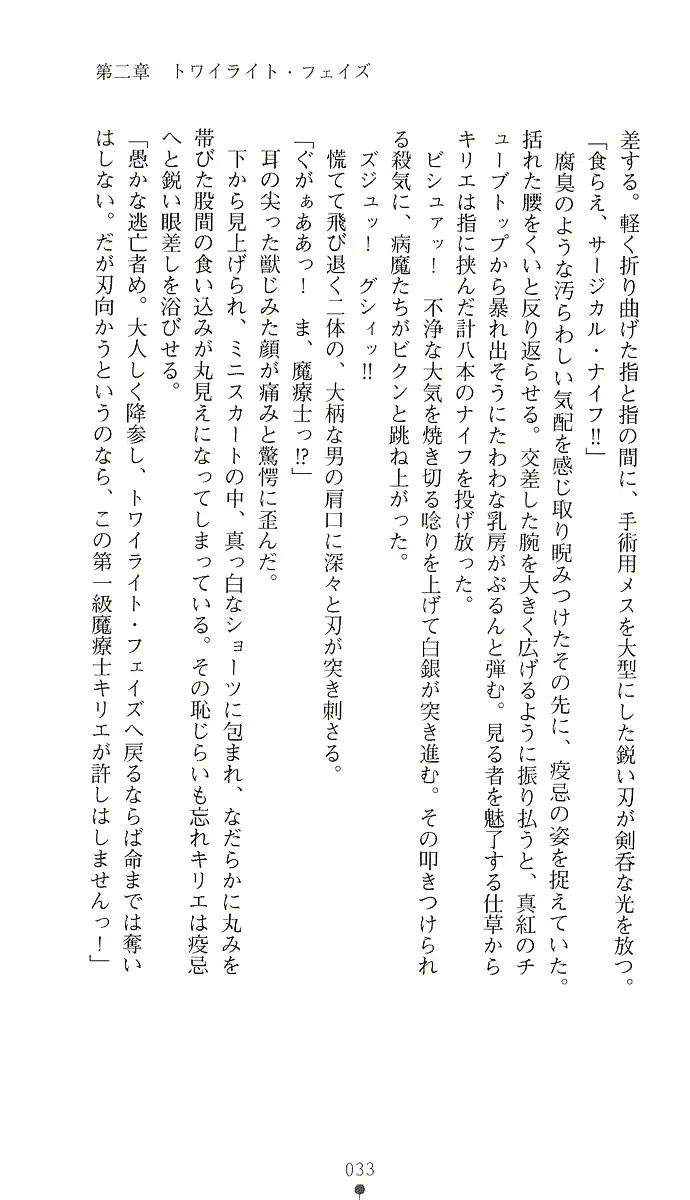 第二章　トワイライト・フェイズ
差する。軽く折り曲げた指と指の間に、手術用メスを大型にした鋭い刃が剣呑な光を放つ。
「食らえ、サージカル・ナイフ!!」
　腐臭のような汚らわしい気配を感じ取り睨みつけたその先に、疫忌の姿を捉えていた。
括れた腰をくいと反り返らせる。交差した腕を大きく広げるように振り払うと、真紅のチ
ューブトップから暴れ出そうにたわわな乳房がぷるんと弾む。見る者を魅了する仕草から
キリエは指に挟んだ計八本のナイフを投げ放った。
　ビシュァッ！　不浄な大気を焼き切る唸りを上げて白銀が突き進む。その叩きつけられ
る殺気に、病魔たちがビクンと跳ね上がった。
　ズジュッ！　グシィッ!!
　慌てて飛び退く二体の、大柄な男の肩口に深々と刃が突き刺さる。
「ぐがぁああっ！　ま、魔療士っ!?」
　耳の尖った獣じみた顔が痛みと驚愕に歪んだ。
　下から見上げられ、ミニスカートの中、真っ白なショーツに包まれ、なだらかに丸みを
帯びた股間の食い込みが丸見えになってしまっている。その恥じらいも忘れキリエは疫忌
へと鋭い眼差しを浴びせる。
「愚かな逃亡者め。大人しく降参し、トワイライト・フェイズへ戻るならば命までは奪い
はしない。だが刃向かうというのなら、この第一級魔療士キリエが許しはしませんっ！」
033